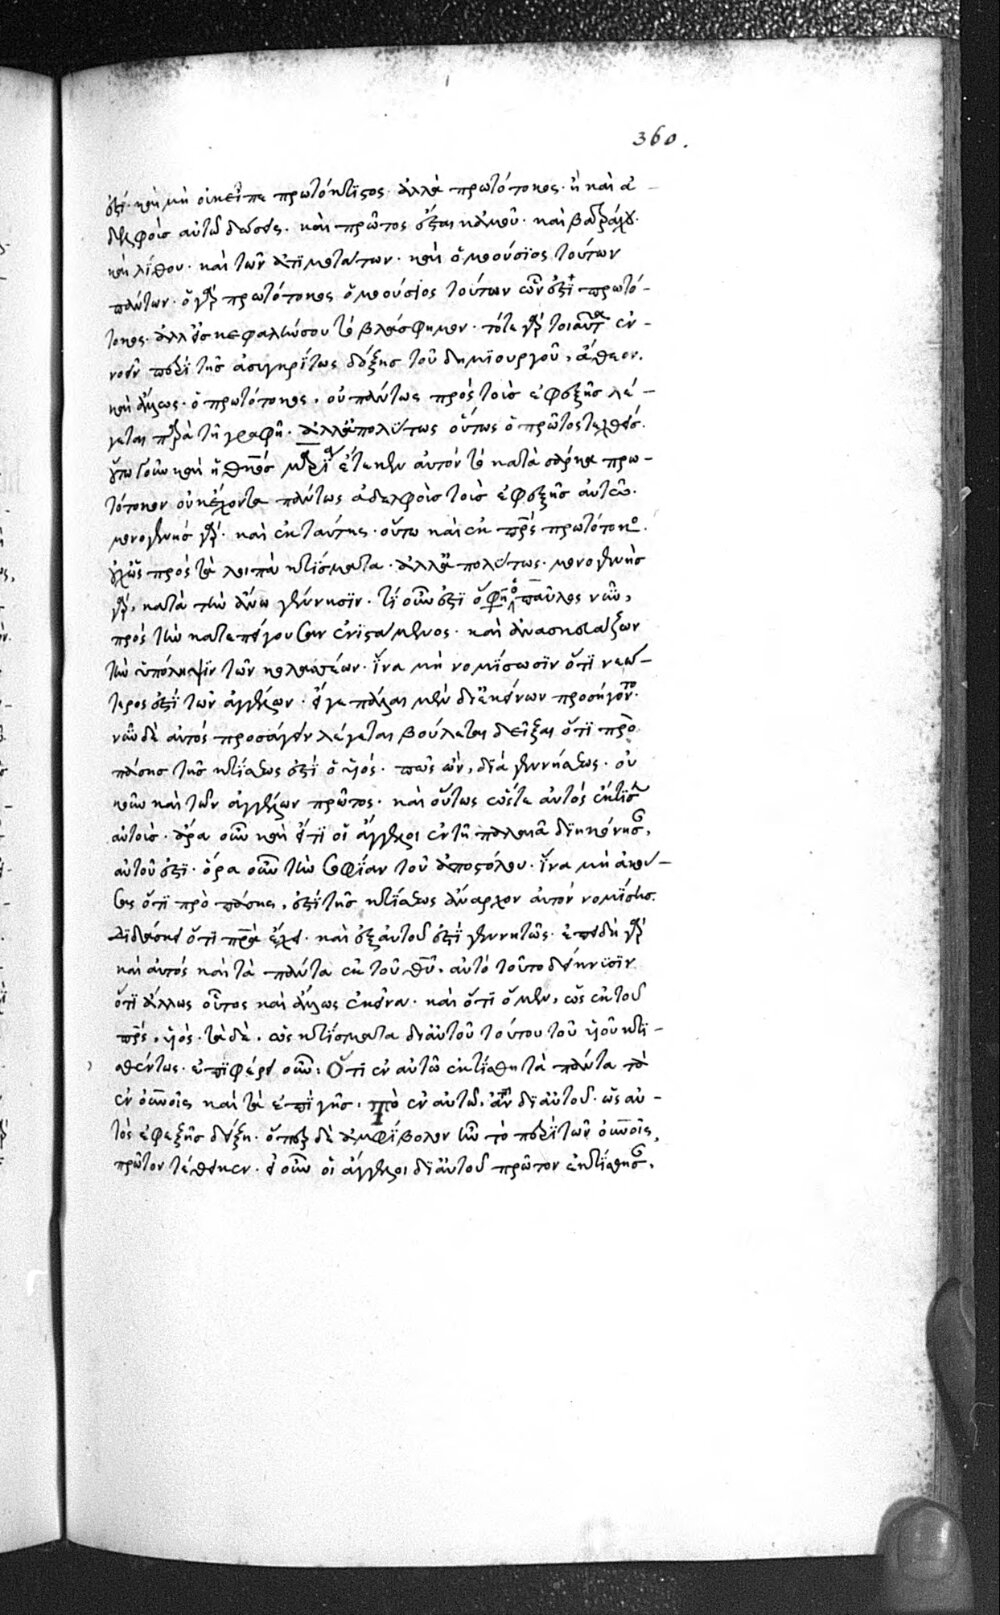 ἐστί· καὶ μὴ οὐκ εἶπε πρωτόκτιστος· ἀλλὰ πρωτότοκος· ἢ καὶ ἀ-
δελφοὺς αὐτῶ δώσεις· καὶ πρῶτος ἔσται κἀμοῦ· καὶ βατράχου·
καὶ λίθου· καὶ τῶν ἀτιμοτάτων· καὶ ὁμοούσιος τούτων
πάντων· ὁ γὰρ πρωτότοκος ὁμοούσιος τούτων ὧν ἐστὶ πρωτό-
τοκος· ἀλλ' εἰς κεφαλὴν σου τὸ βλάσφημον· τότε γὰρ τοιαῦτα ἐν-
νοεῖν περὶ τῆς ἀσυγκρίτως δόξης τοῦ δημιουργοῦ, ἄθεον.
καὶ ἄλλως· ὁ πρωτότοκος, οὐ πάντως πρὸς τοὺς ἐφεξῆς λέ-
γεται παρὰ τῆ γραφῆ· ἀλλ' ἀπολύτως οὕτως ὁ πρῶτος τεχθείς.
οὕτω γοῦν καὶ ἡ θεοτόκος μαρία ἔτεκεν αὐτὸν τὸ κατὰ σάρκα πρω-
τότοκον οὐκ ἔχοντα πάντως ἀδελφοὺς τοὺς ἐφεξῆς αὐτῶ·
μονογενὴς γὰρ· καὶ ἐκ ταύτης· οὕτω καὶ ἐκ πρς πρωτότοκος.
οὐχ ὡς πρὸς τὰ λοιπὰ κτίσματα· ἀλλ' ἀπολύτως· μονογενὴς
γὰρ, κατὰ τὴν ἄνω γέννησιν· τί οὖν ἐστὶ ὅ φησιν ὁ παῦλος νῦν,
πρὸς τὴν κατεπείγουσαν ἐνιστάμενος· καὶ ἀνασκευάζων
τὴν ὑπόληψιν τῶν κολασσέων· ἵνα μὴ νομίσωσιν ὅτι νεώ-
τερός ἐστι τῶν ἀγγέλων· εἴγε πάλαι μὲν δι' ἐκείνων προσήγοντο·
νῦν δὲ αὐτὸς προσάγειν λέγεται βούλεται δεῖξαι ὅτι πρὸ
πάσης τῆς κτίσεως ἐστὶ ὁ υἱός· πῶς ὢν, διὰ γεννήσεως· οὐ
κοῦν καὶ τῶν ἀγγέλων πρῶτος· καὶ οὕτως ὥστε αὐτὸς ἔκτισεν
αὐτούς· ἄρα οὖν καὶ ὅτι οἱ ἄγγελοι ἐν τῆ παλαιᾶ διηκόνησαν,
αὐτοῦ ἐστὶ· ὅρα οὖν τὴν σοφίαν τοῦ ἀποστόλου· ἵνα μὴ ἀκού-
σας ὅτι πρὸ πάσης, ἐστὶ τῆς κτίσεως ἄναρχον αὐτὸν νομίσης.
διδάσκει ὅτι πρα ἔχει· καὶ ἐξ αὐτοῦ ἐστὶ γεννητῶς· ἐπειδὴ γὰρ
καὶ αὐτὸς καὶ τὰ πάντα ἐκ τοῦ θυ, αὐτὸ τοῦτο δείκνυσιν
ὅτι ἄλλως οὗτος καὶ ἄλλως ἐκεῖνα· καὶ ὅτι ὁ μὲν, ὡς ἐκ τοῦ
πρς, υἱός· τὰ δὲ, ὡς κτίσματα δι' αὐτοῦ τούτου τοῦ υἱοῦ κτι-
σθέντως· ἐπιφέρει οὖν· Ὅτι ἐν αὐτῶ ἐκτίσθη τὰ πάντα τὰ
ἐν οὐνοῖς καὶ τὰ ἐπὶ γῆς· τὸ ἐν αὐτῶ, ἀντὶ δι' αὐτοῦ· ὡς αὐ-
τὸς ἐφεξῆς δείξει· ὅπερ δὲ ἀμφίβολον ἦν τὸ περὶ τῶν οὐνοῖς,
πρῶτον τέθεικεν· εἰ οὖν οἱ ἄγγελοι δι' αὐτοῦ πρῶτον ἐκτίσθησαν,